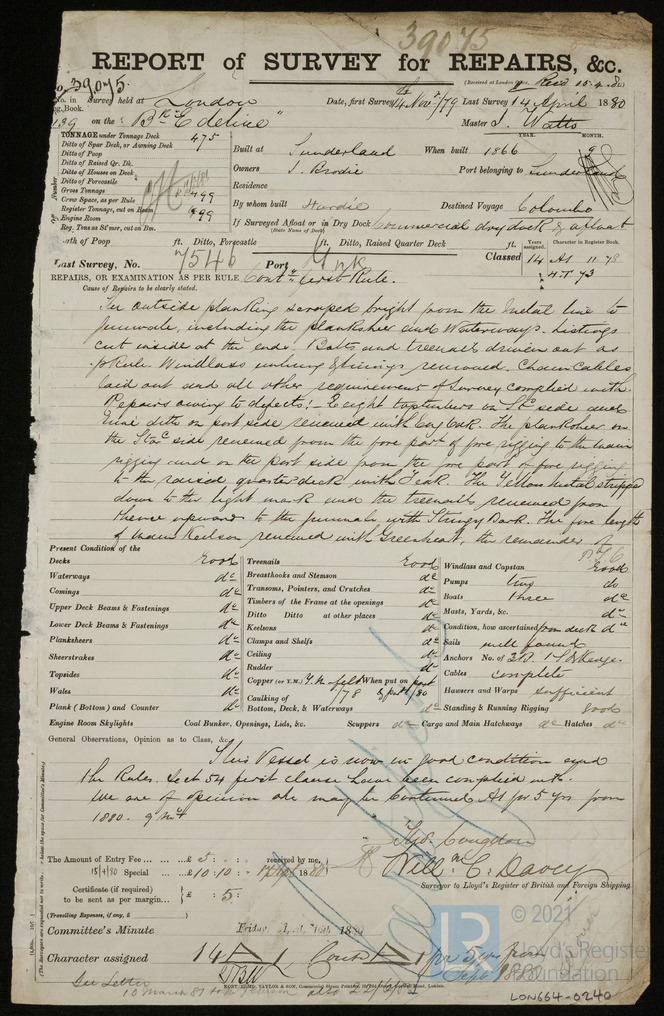 39075
REPORT of SURVEY for REPAIRS, &c.
No. 39075. (Received at London Recd 15.4.80
No. in Survey held at London Date, first Survey 14 Novr /79 Last Survey 14 April 1880
Reg. Book.
139 on the "Bktn Edeline" Master J. Watts
TONNAGE under Tonnage Deck 475
Ditto of Spar Deck, or Awning Deck
Ditto of Poop
Ditto of Raised Qr. Dk.
Ditto of Houses on Deck
Ditto of Forecastle
Gross Tonnage 499
Crew Space, as per Rule
Register Tonnage, cut on Beam 499
Engine Room
Reg. Tons as St'mer, cut on Bm.
YEAR. MONTH.
Built at Sunderland When built 1866 9
Owners J. Brodie Port belonging to Sunderland
Residence
By whom built Hardie Destined Voyage Colombo
If Surveyed Afloat or in Dry Dock Commercial dry dock & afloat
(State Name of Dock)
Length of Poop ft. Ditto, Forecastle ft. Ditto, Raised Quarter Deck ft.
Years assigned. Character in Register Book.
Last Survey, No. 7546 Port Classed 14 A1 11.78
REPAIRS, OR EXAMINATION AS PER RULE, Contn first Rule.
Cause of Repairs to be clearly stated.
The outside planking scraped bright from the metal line to
gunwale, including the planksheer and Waterways. Listings
cut inside at the ends. Bolts and treenails driven out as
pr Rule. Windlass unhung & linings removed. Chain Cables
laid out and all other requirements of Survey complied with.
Repairs owing to defects:- Eight toptimbers on Std side and
nine ditto on port side renewed with Eng Oak. The planksheer on
the Stard side renewed from the fore part of fore rigging to the main
rigging and on the port side from the fore part of fore rigging
to the raised quarterdeck with Teak. The Yellow metal stripped
down to the light mark and the treenails renewed from
thence upward to the gunwale with Stringy Bark. The fore length
of main Keelson renewed with Greenheart, the remainder of
Present Condition of the
Decks Good
Waterways do
Comings do
Upper Deck Beams & Fastenings do
Lower Deck Beams & Fastenings do
Planksheers do
Sheerstrakes do
Topsides do
Wales do
Plank (Bottom) and Counter do
Treenails Good
Breasthooks and Stemson do
Transoms, Pointers, and Crutches do
Timbers of the Frame at the openings do
Ditto Ditto at other places do
Keelsons do
Clamps and Shelfs do
Ceiling do
Rudder do
Copper (or Y.M.) Y.M. & felt When put on part
Caulking of /78 & part /80
Bottom, Deck, & Waterways do
Windlass and Capstan Good
Pumps two do
Boats three do
Masts, Yards, &c. do
Condition, how ascertained from deck do
Sails well found
Anchors No. of 3B. 1S & Kedge.
Cables complete
Hawsers and Warps sufficient
Standing & Running Rigging good
Engine Room Skylights Coal Bunker, Openings, Lids, &c. Scuppers do Cargo and Main Hatchways do Hatches do
General Observations, Opinion as to Class, &c.
This Vessel is now in good condition and
the Rules. Sect 54 first clause have been complied with.
We are of opinion she may be Continued A1 for 5 yrs from
1880. 9 mo
Thos. Congdon
The Amount of Entry Fee ... ... £ 5 : : received by me,
15/4/80 Special ... £ 10.10 : 188
Willm C. Davey
Certificate (if required) to be sent as per margin... £ : 5 :
Surveyor to Lloyd's Register of British and Foreign Shipping.
(Travelling Expenses, if any, £ )
Committee's Minute Friday, April 16th 1880
Character assigned 14 A 1 Contd A 1 for 5 yrs from
Sept 1880
See Letter
10 March 81
© 2021
Lloyd's Register
Foundation
LON664-0240